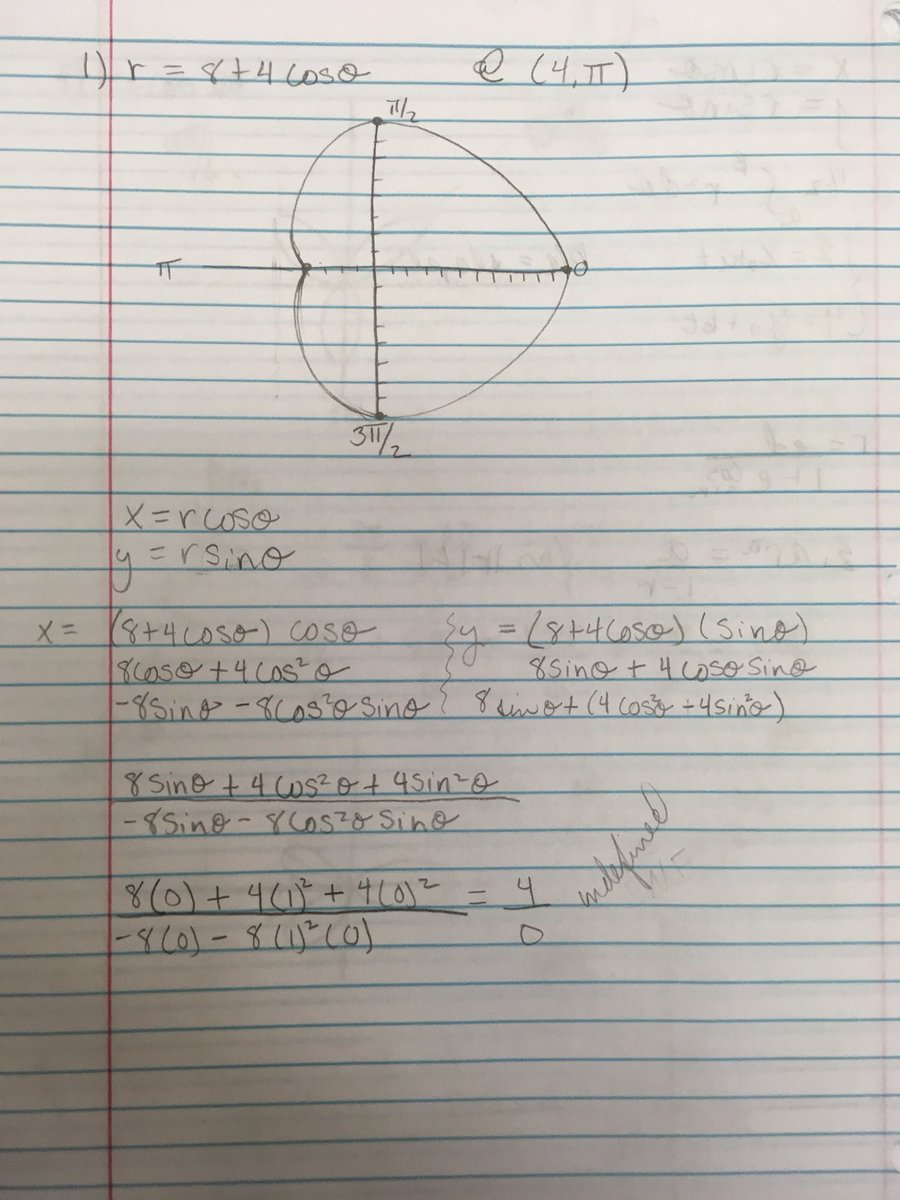 1) r = 8+4 cosθ @ (4,π)
π/2
π 0
3π/2
x = r cosθ
y = r sinθ
x = (8+4cosθ) cosθ y = (8+4cosθ)(sinθ)
8cosθ + 4cos²θ 8sinθ + 4 cosθ sinθ
-8sinθ - 8cos²θ sinθ 8 sinθ + (4cos²θ + 4sin²θ)
8 sinθ + 4 cos²θ + 4sin²θ
-8sinθ - 8cos²θ sinθ
8(0) + 4(1)² + 4(0)² = 4 undefined
-8(0) - 8(1)²(0) 0